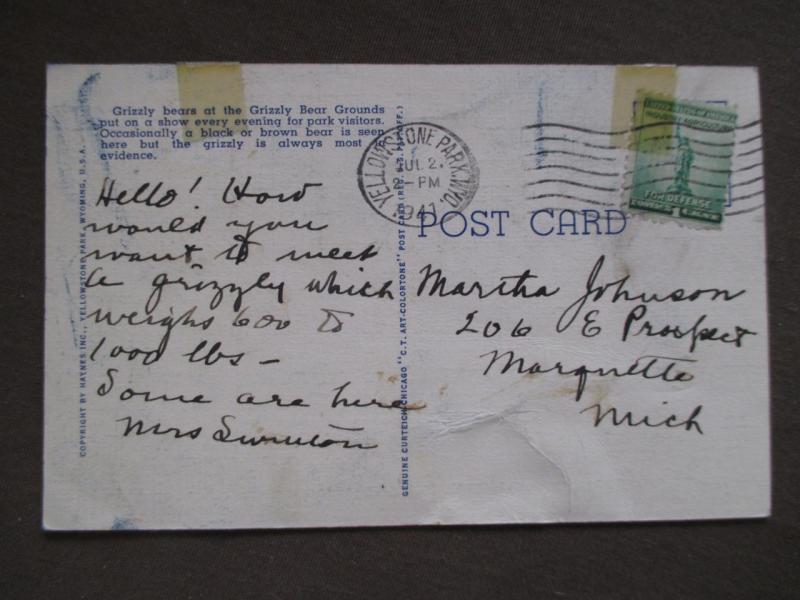 Grizzly bears at the Grizzly Bear Grounds
put on a show every evening for park visitors.
Occasionally a black or brown bear is seen
here but the grizzly is always most in
evidence.
Hello! How
would you
want to meet
a grizzly which
weighs 600 to
1000 lbs —
Some are here
Mrs
COPYRIGHT BY HAYNES INC., YELLOWSTONE PARK, WYOMING, U.S.A.
GENUINE CURTEICH-CHICAGO "C.T. ART-COLORTONE" POST CARD (REG. U.S. PAT. OFF.)
YELLOWSTONE PARK, WYO.
JUL 2
PM
1941
UNITED STATES OF AMERICA
FOR DEFENSE
POST CARD
Martha Johnson
206 E Prospect
Marquette
Mich